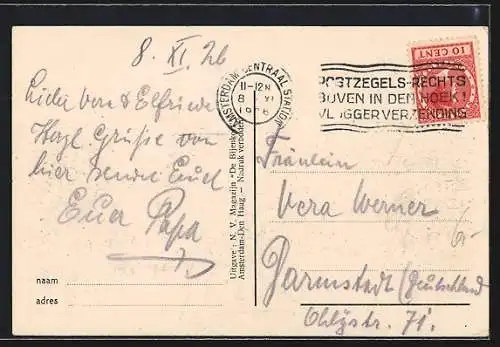 8. XI. 26
Liebe Vera & Elfriede
Herzl. Grüsse von
hier sendet Euch
Euer Papa
naam
adres
Uitgave: N. V. Magazijn „De Bijenkorf"
Amsterdam-Den Haag — Nadruk verboden
AMSTERDAM CENTRAAL STATION
11-12 N
8 XI
1926
POSTZEGELS RECHTS
BOVEN IN DEN HOEK!
VLUGGER VERZENDING
10 CENT
Fräulein
Vera Werner
Darmstadt (Deutschland
Ohlystr. 71.